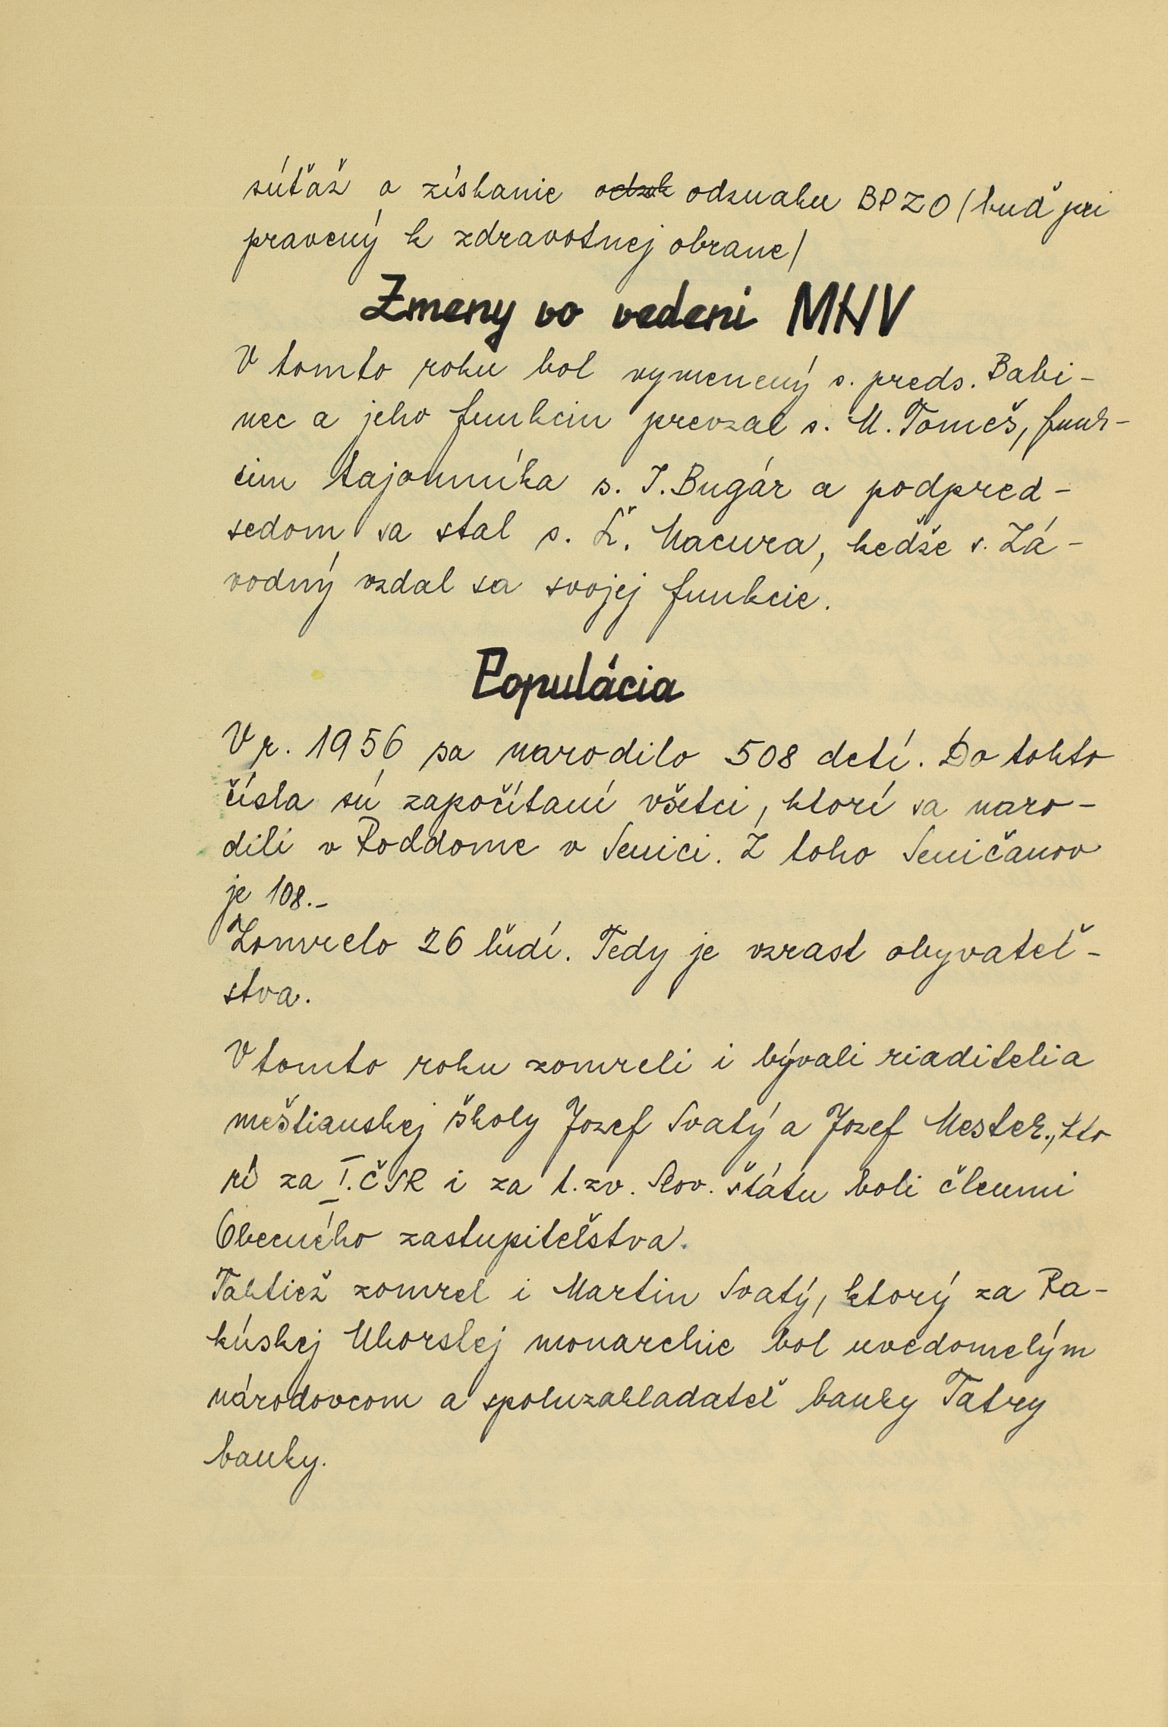 súťaž o získanie odznaku BPZO /buď pri
pravený k zdravotnej obrane/
Zmeny vo vedeni MNV
V tomto roku bol vymenený s. preds. Babi-
nec a jeho funkciu prevzal s. M. Tomeš, funk-
ciu tajomníka s. J. Bugár a podpred-
sedom sa stal s. Ľ. Macura, kedže s. Zá-
vodný vzdal sa svojej funkcie.
Populácia
V r. 1956 sa narodilo 508 detí. Do tohto
čísla sú započítaní všetci, ktorí sa naro-
dili v Roddome v Senici. Z toho Seničanov
je 108.-
Zomrelo 26 ľudí. Tedy je vzrast obyvateľ-
stva.
V tomto roku zomreli i bývali riaditelia
meštianskej školy Jozef Svatý a Jozef Mester, kto
rí za I. ČSR i za t.zv. Slov. štátu boli členmi
Obecného zastupiteľstva.
Taktiež zomrel i Martin Svatý, ktorý za Ra-
kúskej Uhorskej monarchie bol uvedomelým
národovcom a spoluzakladateľ banky Tatry
banky.